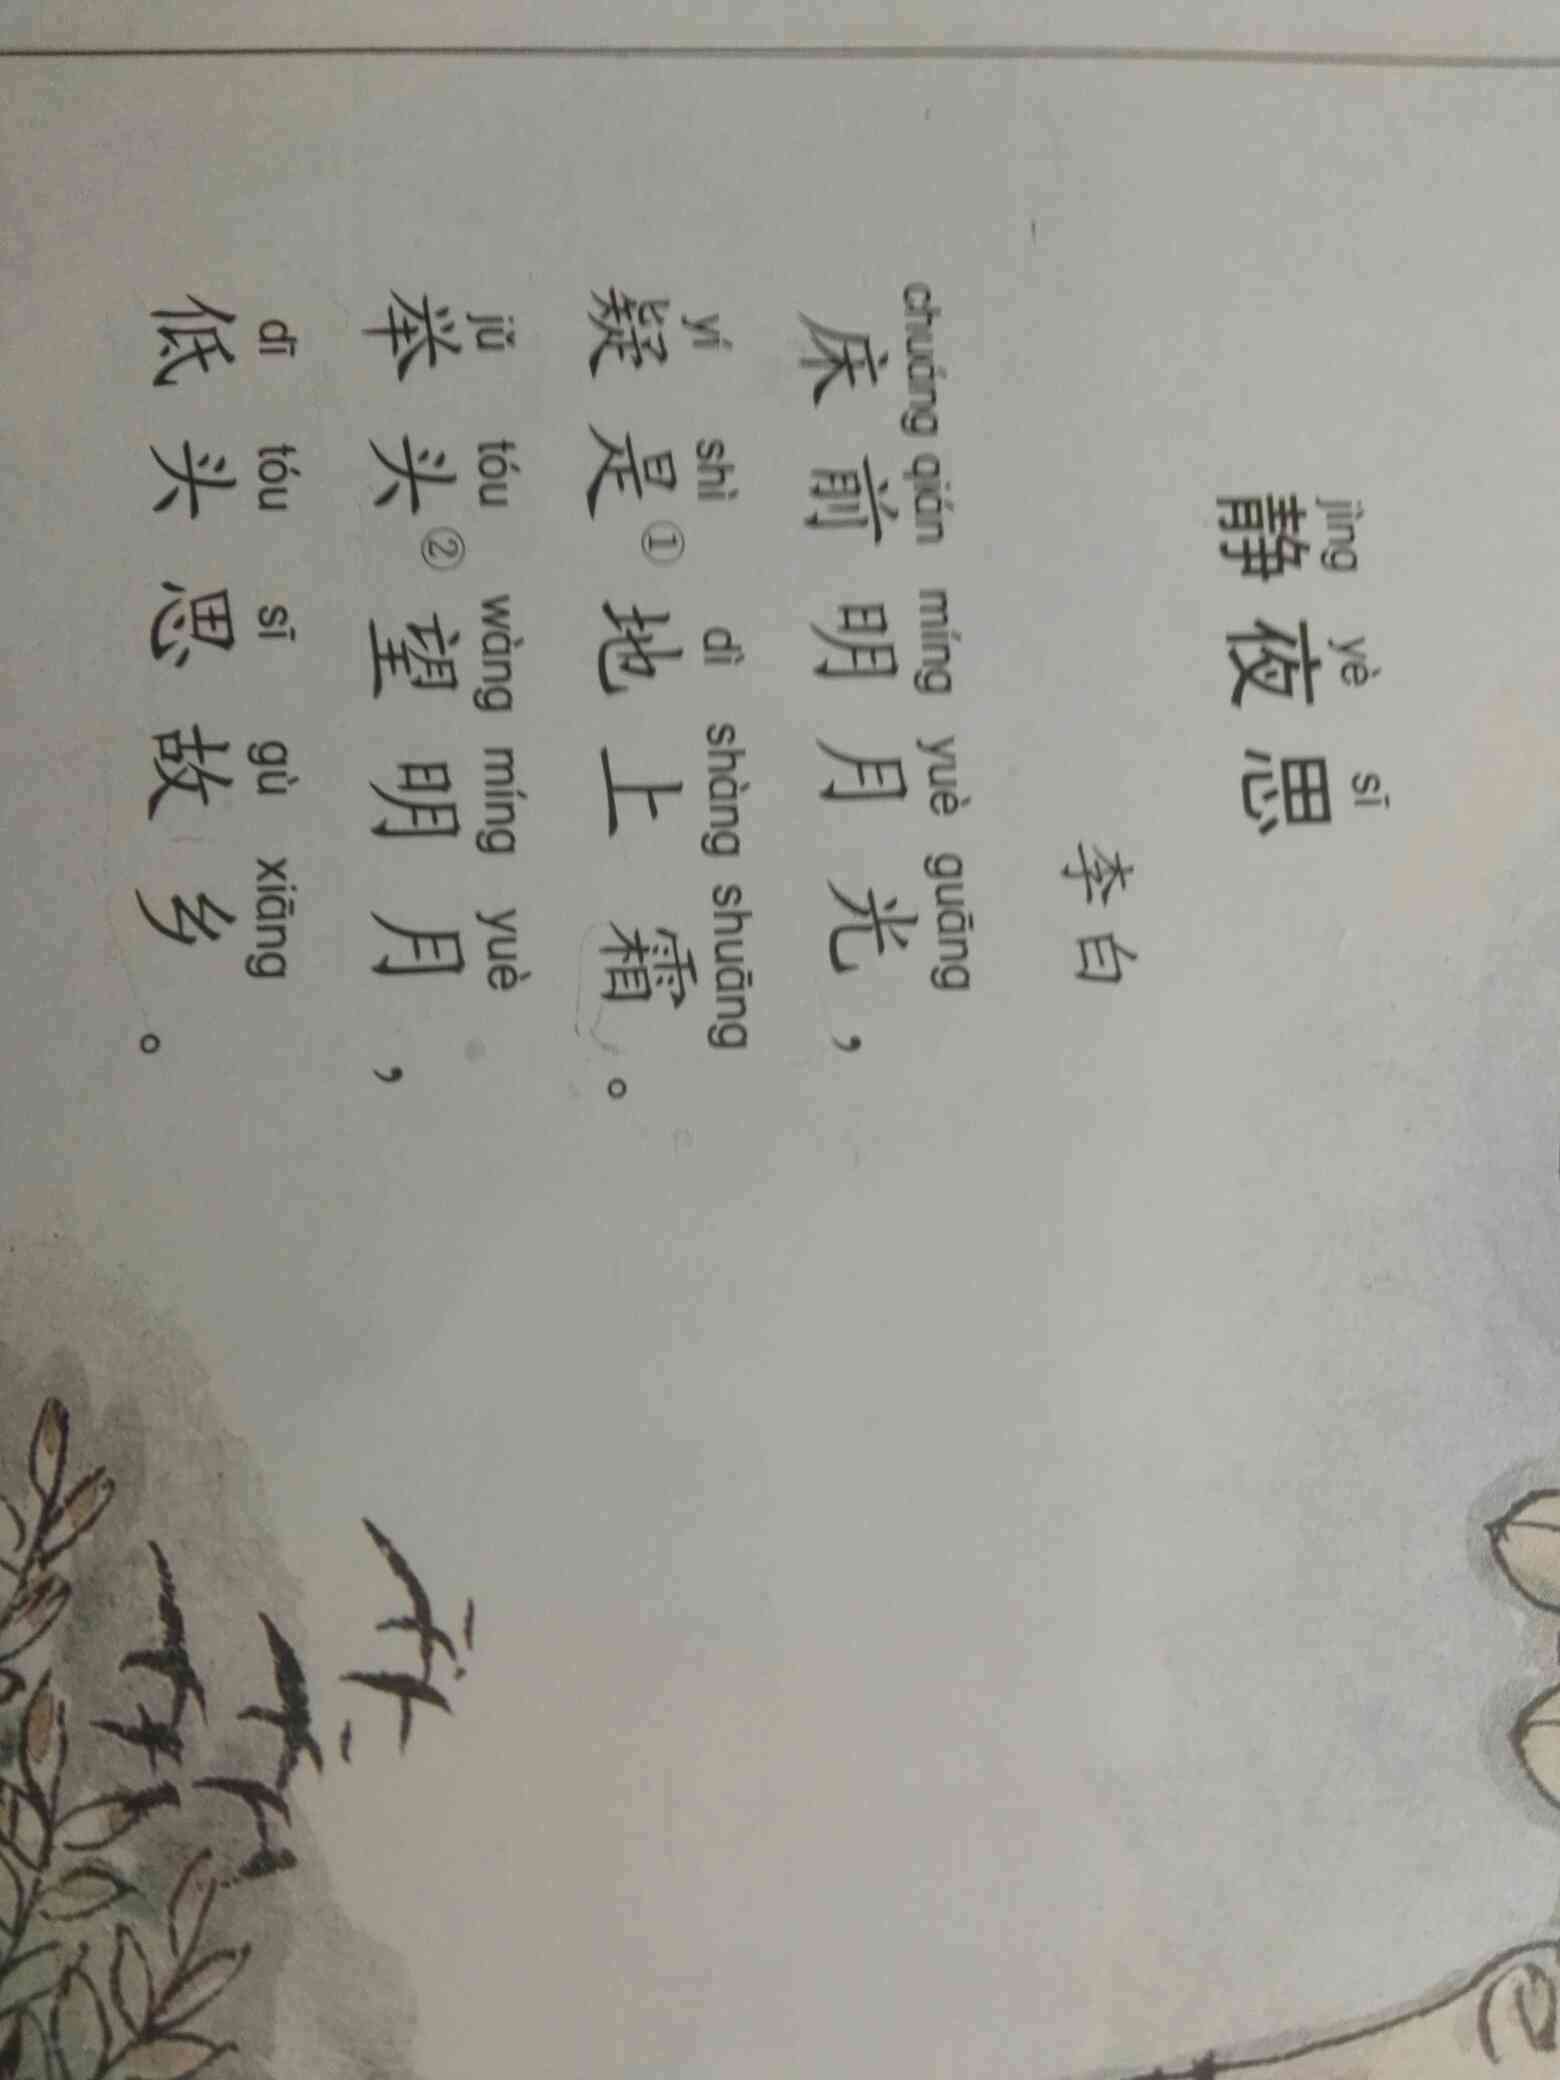 jìng yè sī
静夜思
李白
chuáng qián míng yuè guāng
床前明月光，
yí shì dì shàng shuāng
疑是①地上霜。
jǔ tóu wàng míng yuè
举头②望明月，
dī tóu sī gù xiāng
低头思故乡。